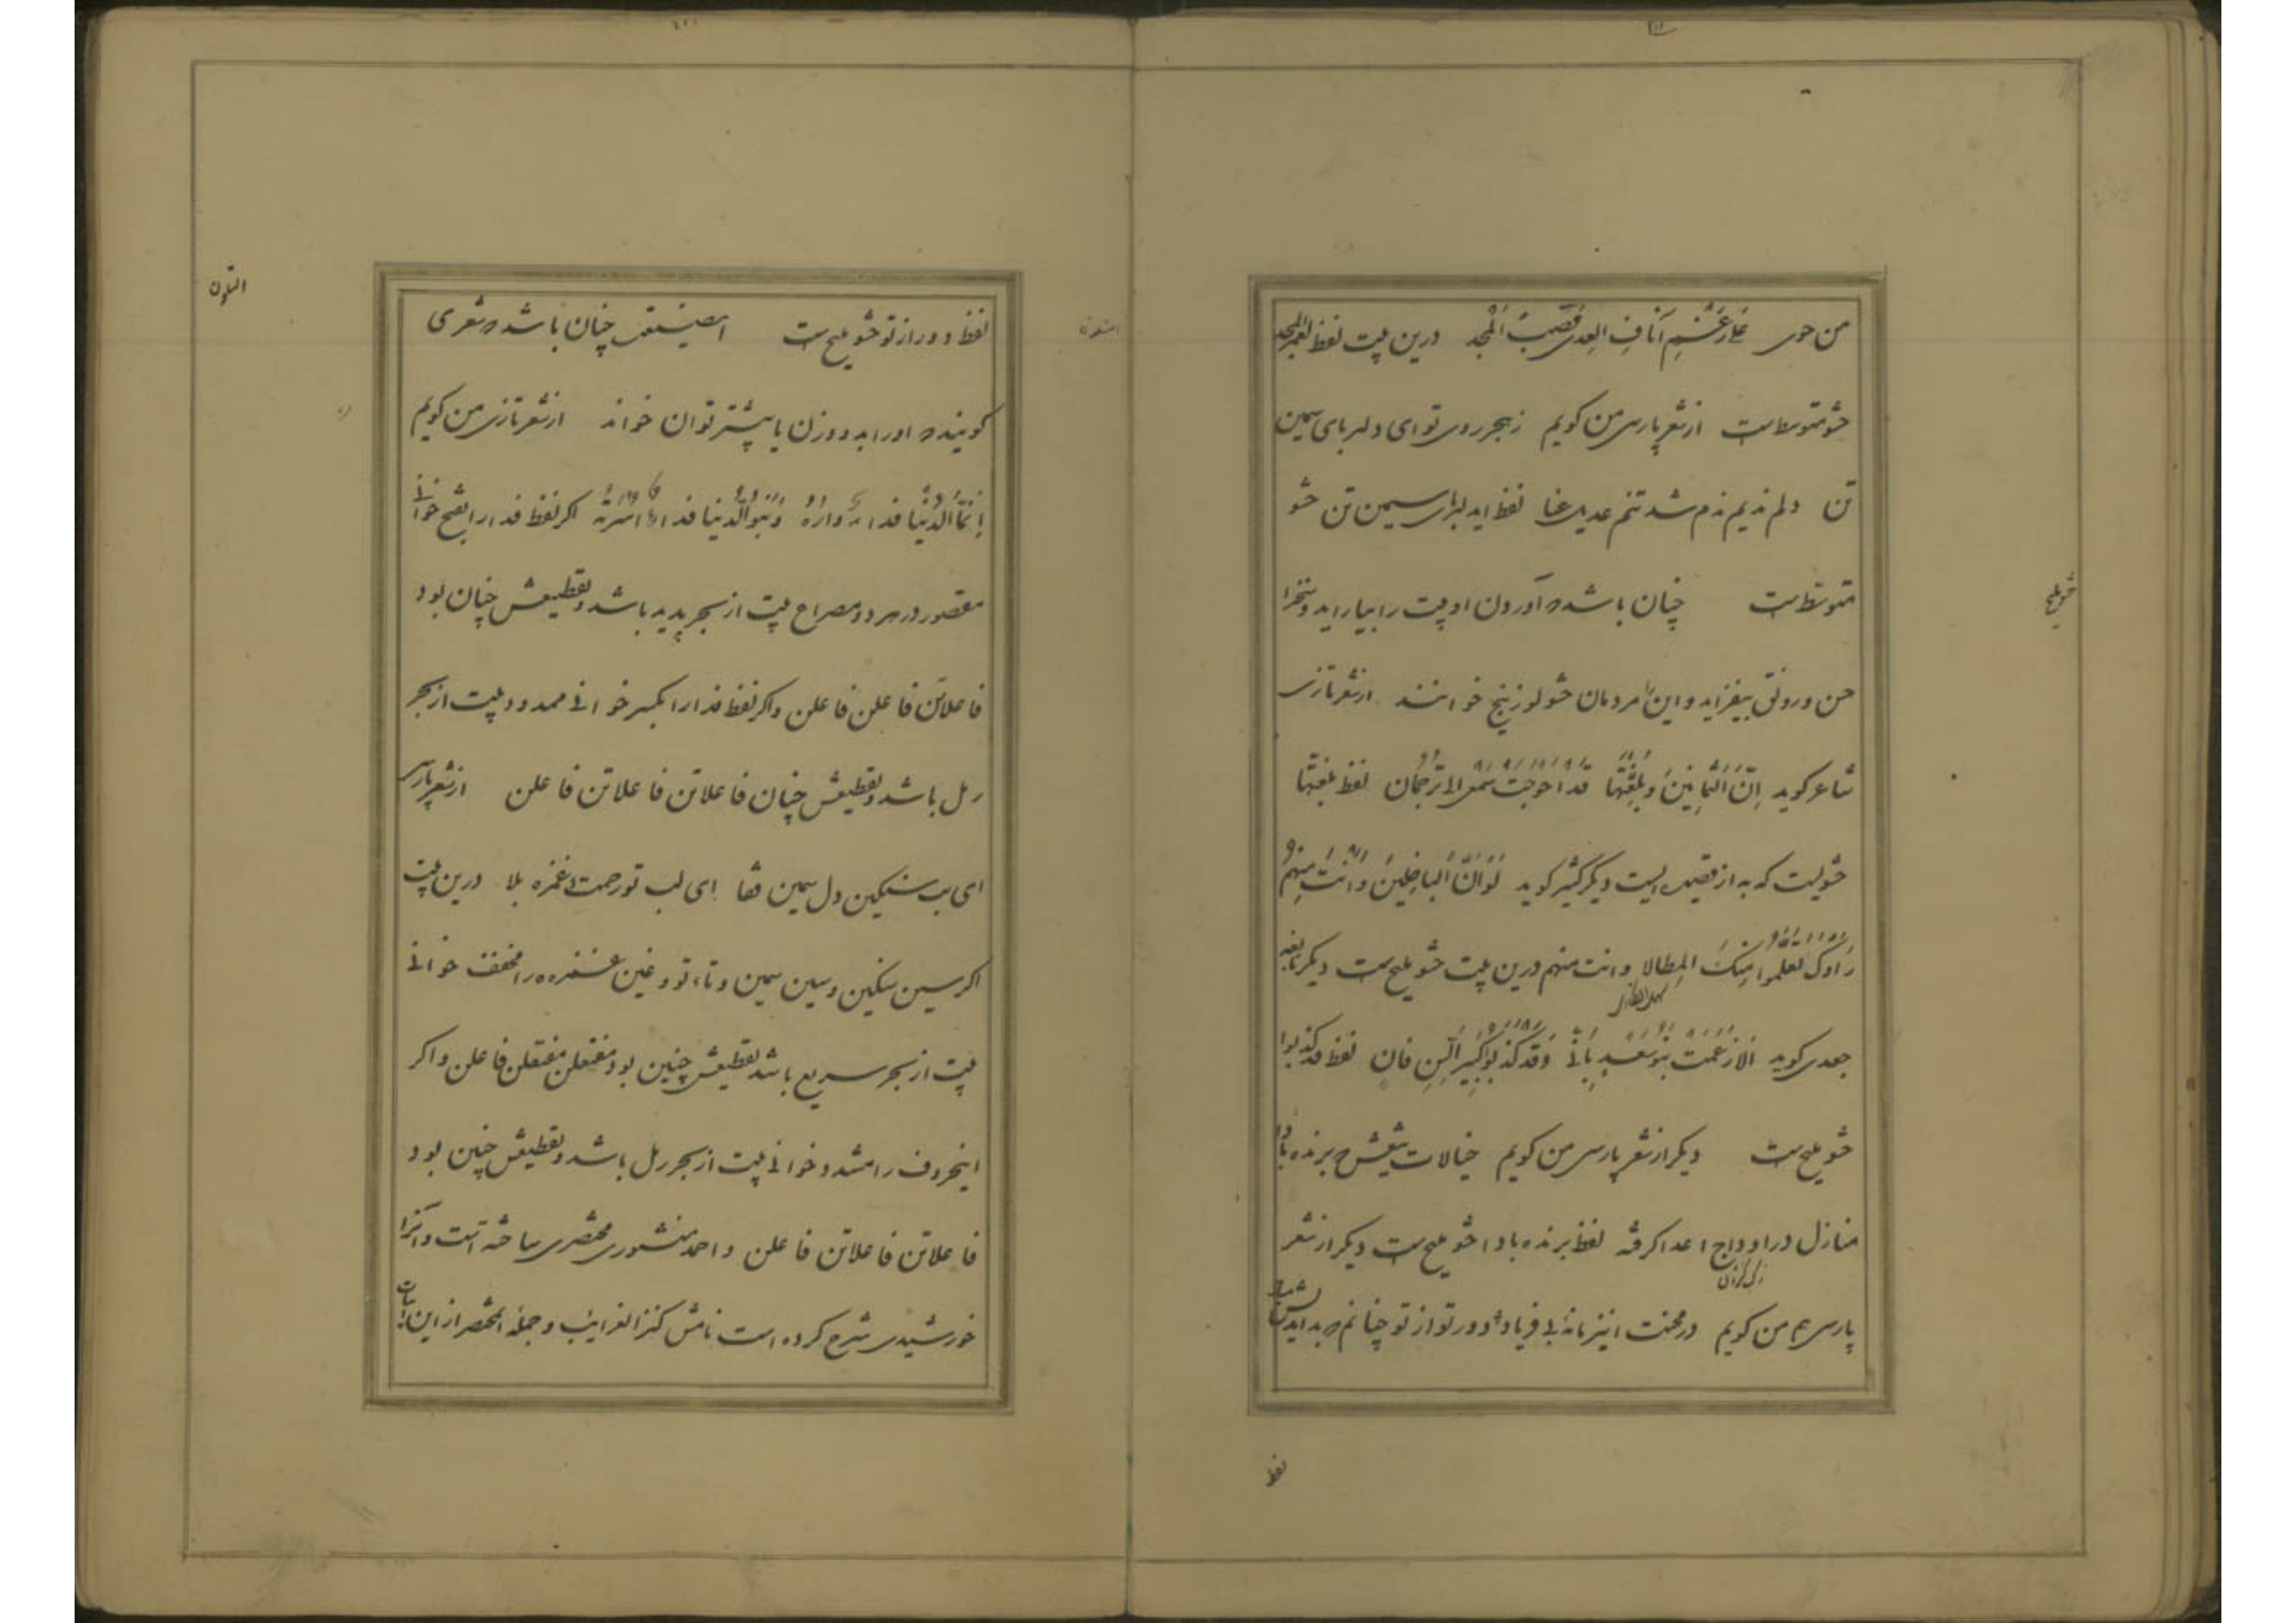 من حوی علی رغم آناف العدی قصب المجد درین بیت لفظ لعمر المجد
حشو متوسط است از شعر پارسی من کویم ز هجر روی تو ای دلربای سیمین
تن دلم ندیم ندم شد تنم عدیل عنا لفظ ای دلربای سیمین تن حشو
متوسط است حشو ملیح
چنان باشد که آوردن او بیت را بیاراید و سخن را
حسن و رونق بیفزاید و این را مردمان حشو لوزینج خوانند از شعر تازی
شاعر کوید اِنَّ الثمانینَ وبُلِّغتَها قد احوجت سمعی الی ترجمان لفظ بلغتها
حشویست که به از قصیده ایست دیکر کثیر کوید لَوْ اَنَّ الباخلینَ وانت منهم
رَاوْکَ تعلموا منکَ المِطالا وانت منهم درین بیت حشو ملیح است دیکر نابغه
جعدی کوید اَلا زعمت بنو سعد بِاَنّی وقد کذبوا کبیر السن فان لفظ قد کذبوا
حشو ملیح است دیکر از شعر پارسی من کویم خیالات تیغش که برنده بادا
منازل در اوداج اعدا کرفته لفظ برنده بادا حشو ملیح است دیکر از شعر
پارسی هم من کویم در محنت این زمانه بی فریاد دور تو از تو چنانم که بداندیش تو باد
لفظ
لفظ دور از تو حشو ملیح است المتلون
این صنعت چنان باشد که شعری
کوینده او را بدو وزن یا بیشتر توان خواند از شعر تازی من کویم
اِنَّما الدُّنیا فدا دارهُ وَبَنو الدنیا فدا اسرته اکر لفظ فدا را بفتح خوانی
مقصور در هر دو مصراع بیت از بحر پدید باشد و تقطیعش چنان بود
فاعلاتن فاعلن فاعلن و اکر لفظ فدا را بکسر خوانی ممدود بیت از بحر
رمل باشد و تقطیعش چنان فاعلاتن فاعلاتن فاعلن از شعر پارسی
ای بت سنکین دل سیمین قفا ای لب تو رحمت و غمزه بلا درین بیت
اکر سین سنکین و سین سیمین و تاء تو و غین غمزه را مخفف خوانی
بیت از بحر سریع باشد تقطیعش چنین بود مفتعلن مفتعلن فاعلن و اکر
این حروف را مشدد خوانی بیت از بحر رمل باشد و تقطیعش چنین بود
فاعلاتن فاعلاتن فاعلن و احمد منشوری مختصری ساخته است و آنرا
خورشیدی شرح کرده است نامش کنز الغرایب و جمله المختصر از این ابیات